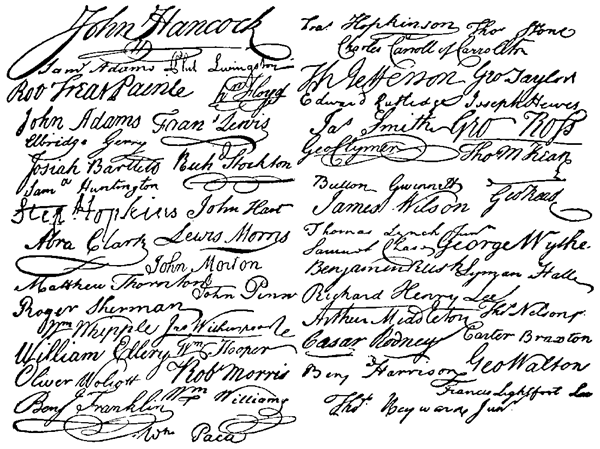 John Hancock
Saml Adams Phil Livingston
Rob Treat Paine Wm Floyd
John Adams Frans Lewis
Elbridge Gerry
Josiah Bartlett Richd Stockton
Saml Huntington
Step Hopkins John Hart
Abra Clark Lewis Morris
John Morton
Matthew Thornton
John Penn
Roger Sherman
Wm Whipple Jno Witherspoon
William Ellery Wm Hooper
Oliver Wolcott Robt Morris
Benj Franklin Wm Williams
Wm Paca
Fras Hopkinson Thos Stone
Charles Carroll of Carrollton
Th Jefferson Geo Taylor
Edward Rutledge Joseph Hewes
Jas Smith Geo Ross
Geo Clymer Tho M Kean
Button Gwinnett
James Wilson Geo Read
Thomas Lynch Junr
Samuel Chase George Wythe
Benjamin Rush Lyman Hall
Richard Henry Lee
Arthur Middleton Thos Nelson jr
Caesar Rodney Carter Braxton
Benj Harrison Geo Walton
Francis Lightfoot Lee
Thos Heyward Junr